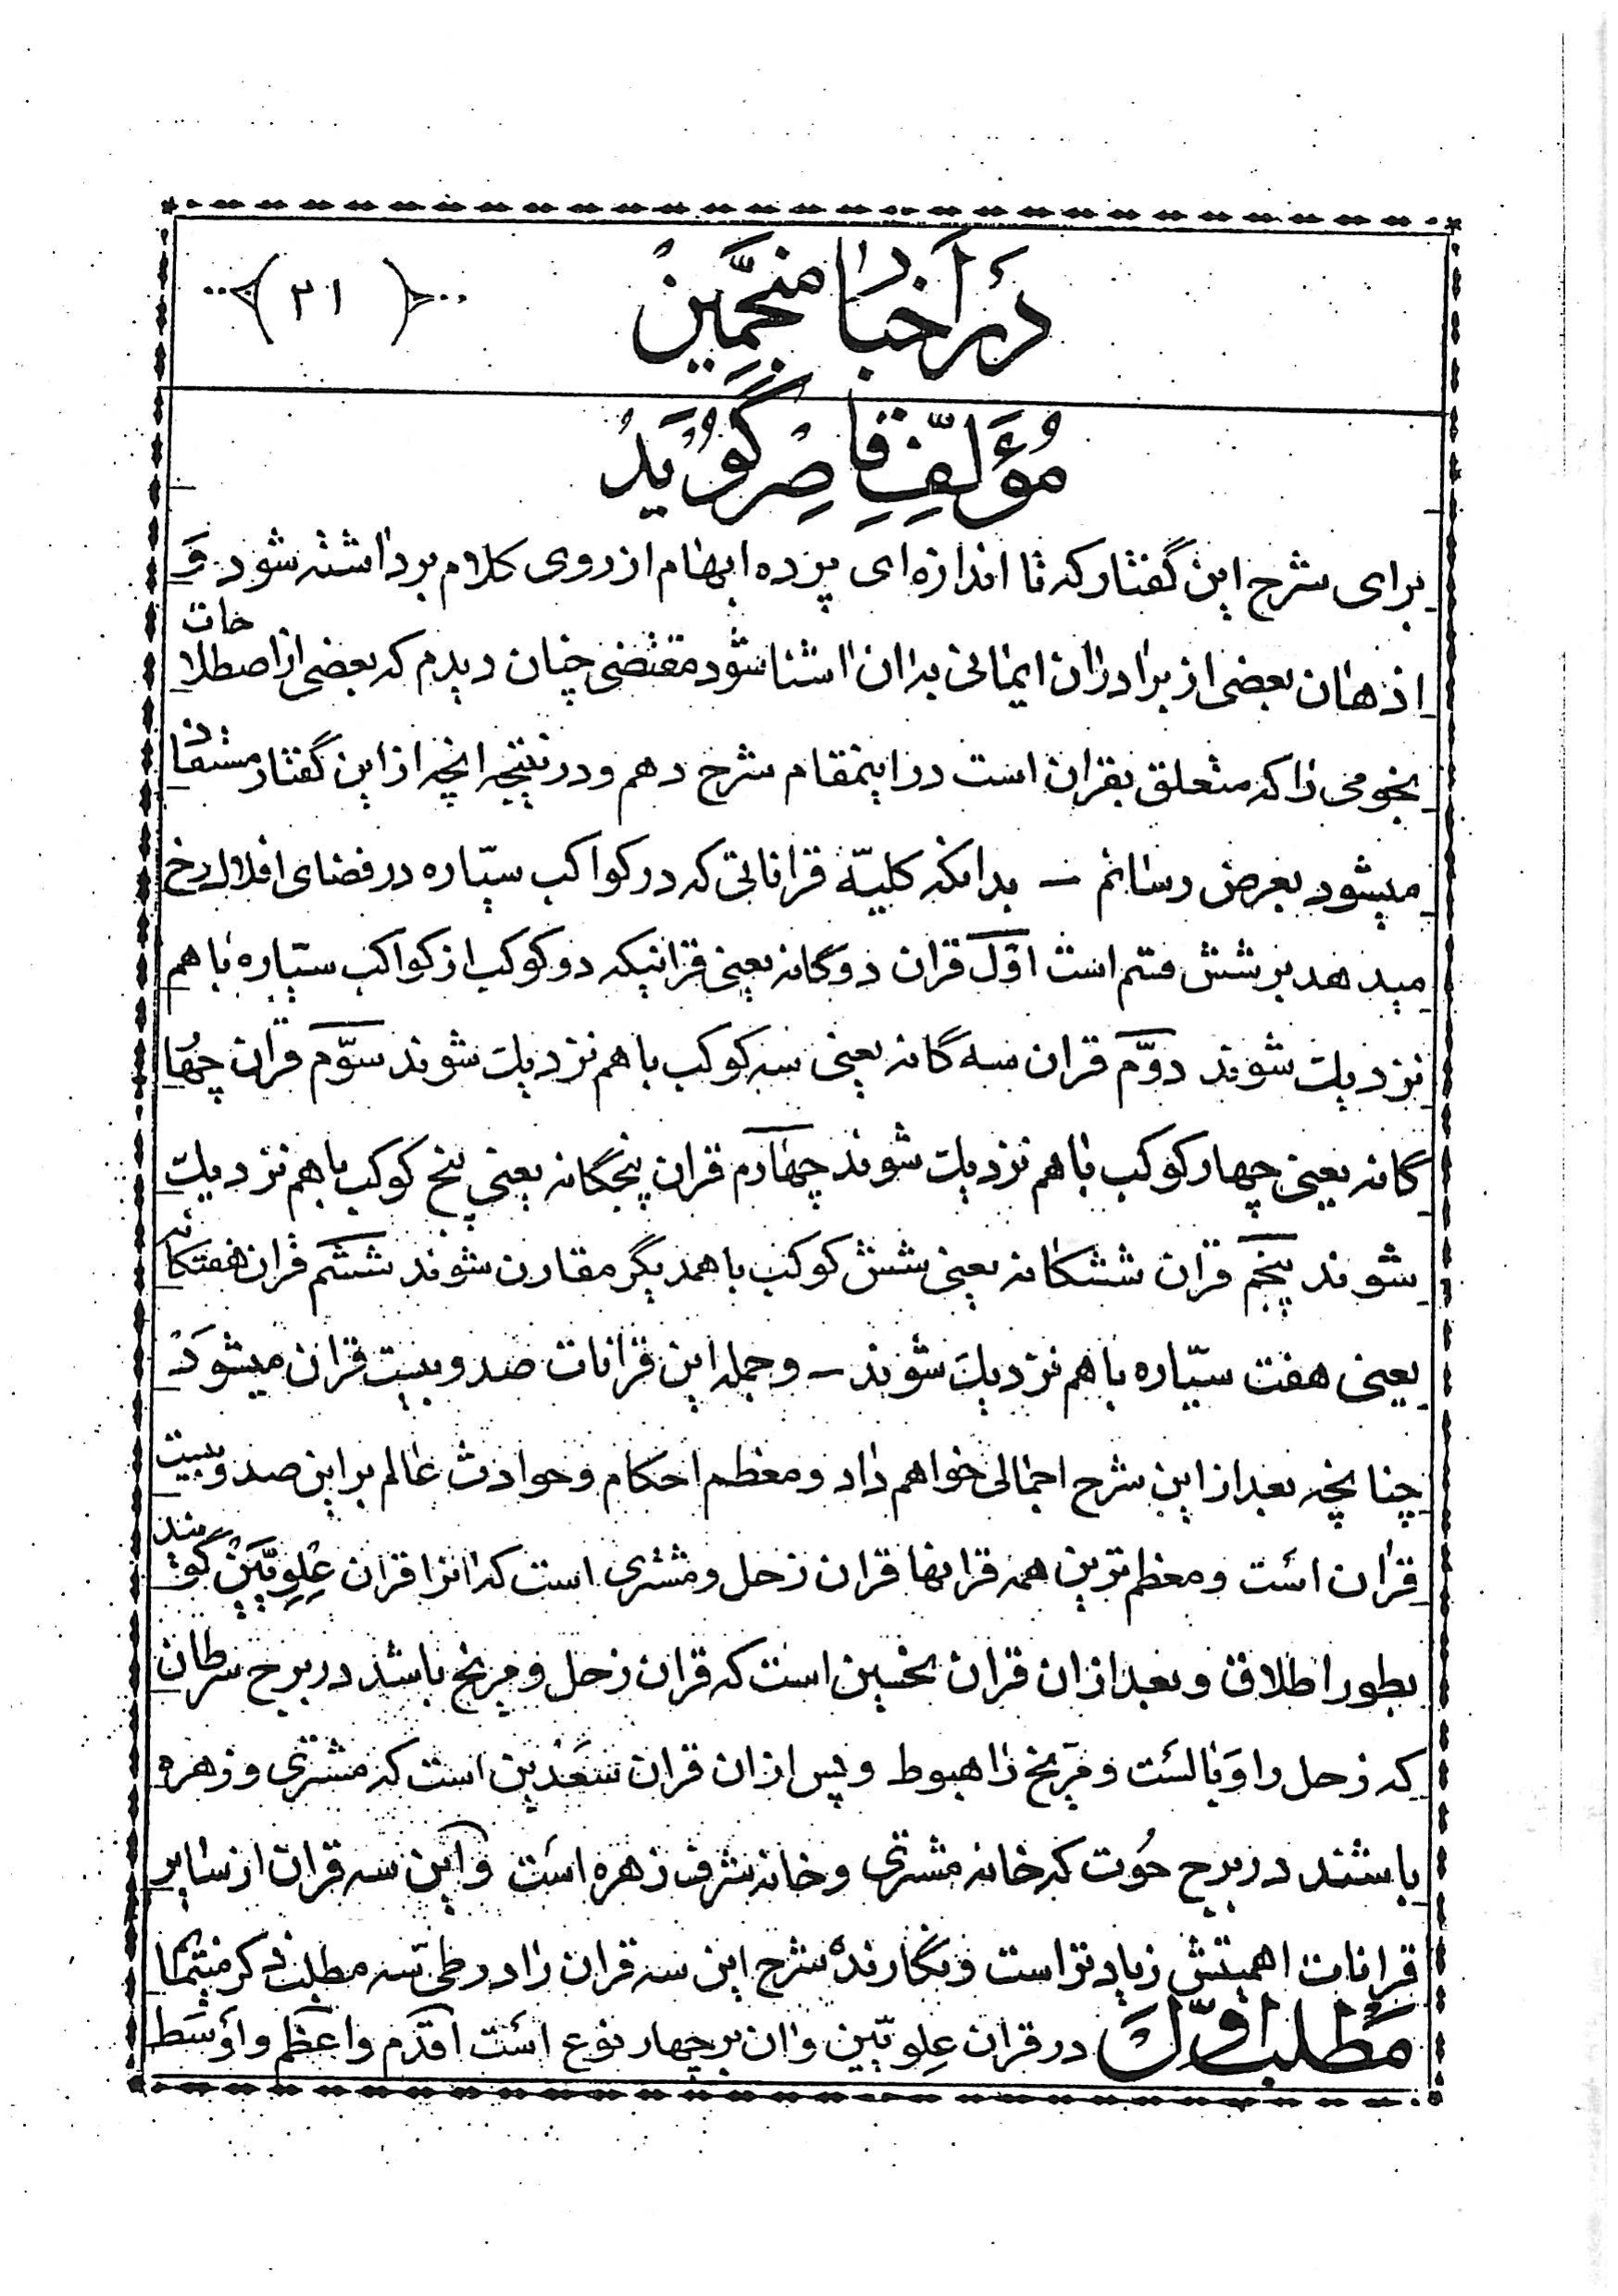 در اخبار منجمین
(۲۱)
مُؤَلِّفِ قاصِر گُوُیَدُ
برای شرح این گفتار که تا اندازه‌ای پرده ابهام از روی کلام برداشته شود وَ
اذهان بعضی از برادران ایمانی بدان اشنا شود مقتضی چنان دیدم که بعضی از اصطلاحات
نجومی را که متعلق بقران است در اینمقام شرح دهم و در نتیجه انچه از این گفتار مستفاد
میشود بعرض رسانم – بدانکه کلیّه قراناتی که در کواکب سیّاره در فضای افلاك رخ
میدهد بر شش قسم است اوّل قران دوگانه یعنی قرانیکه دو کوکب از کواکب سیّاره با هم
نزدیك شوند دوّم قران سه گانه یعنی سه کوکب با هم نزدیك شوند سوّم قران چهار
گانه یعنی چهار کوکب با هم نزدیك شوند چهارم قران پنجگانه یعنی پنج کوکب با هم نزدیك
شوند پنجم قران ششکانه یعنی شش کوکب با همدیگر مقارن شوند ششم قران هفتکانه
یعنی هفت سیّاره با هم نزدیك شوند – و جمله این قرانات صد و بیست قران میشودَ
چنانچه بعد از این شرح اجمالی خواهم داد و معظم احکام و حوادث عالم بر این صد و بیست
قران است و معظم‌ترین همه قرانها قران زحل و مشتری است که انرا قران عِلِویّیَنْ گویند
بطور اطلاق و بعد از ان قران نحسین است که قران زحل و مریخ باشد در برج سرطان
که زحل را وَبالست و مرّیخ را هبوط و پس از ان قران سَعْدین است که مشتری و زهره
باشند در برج حُوت که خانه مشتری و خانه شرف زهره است و این سه قران از سایر
قرانات اهمیتش زیادتر است و نگارنده شرح این سه قران را در طیّ سه مطلب ذکر مینمایم
مَطلب اوّلَ در قران عِلِویّین وان بر چهار نوع است اقدم و اعظم و اوسَط